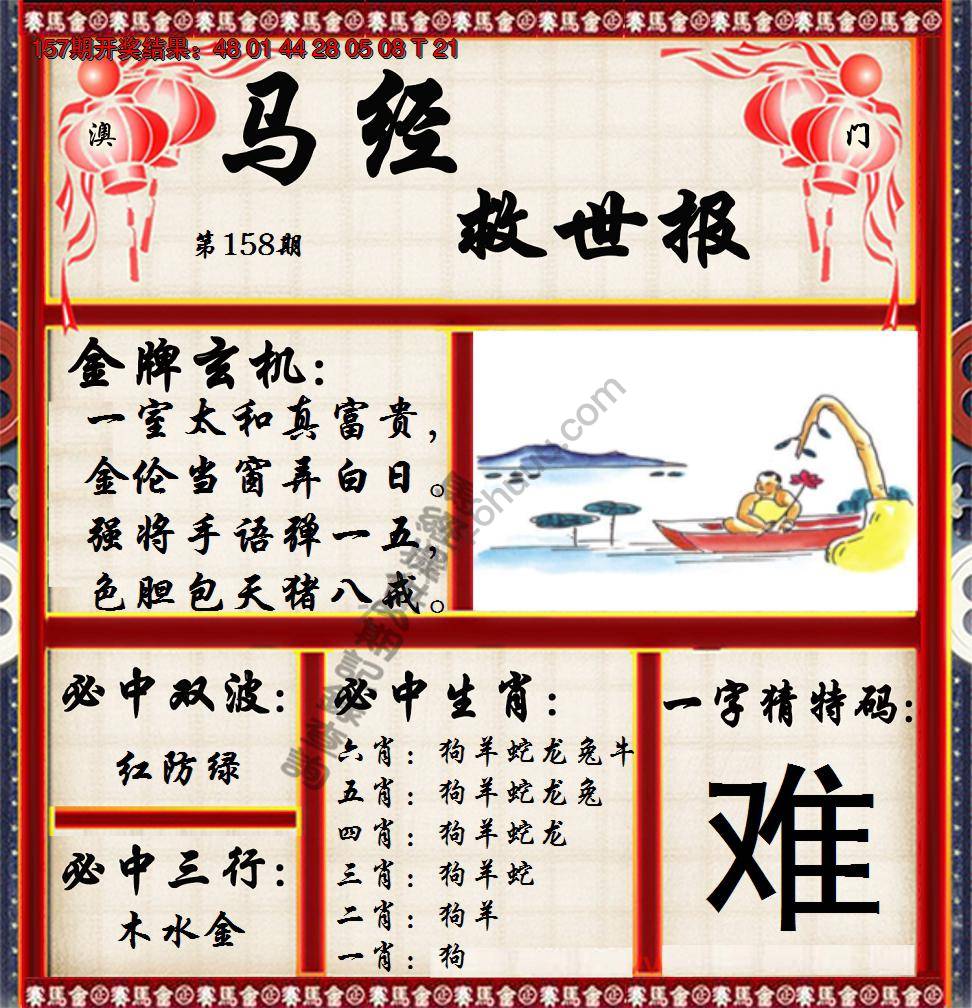 賽馬會
157期开奖结果：48 01 44 28 05 08 T 21
澳 门
马经
救世报
第158期
金牌玄机：
一室太和真富贵，
金伦当窗弄白日。
强将手语弹一五，
色胆包天猪八戒。
必中双波：
红防绿
必中三行：
木水金
必中生肖：
六肖：狗羊蛇龙兔牛
五肖：狗羊蛇龙兔
四肖：狗羊蛇龙
三肖：狗羊蛇
二肖：狗羊
一肖：狗
一字猜特码：
难